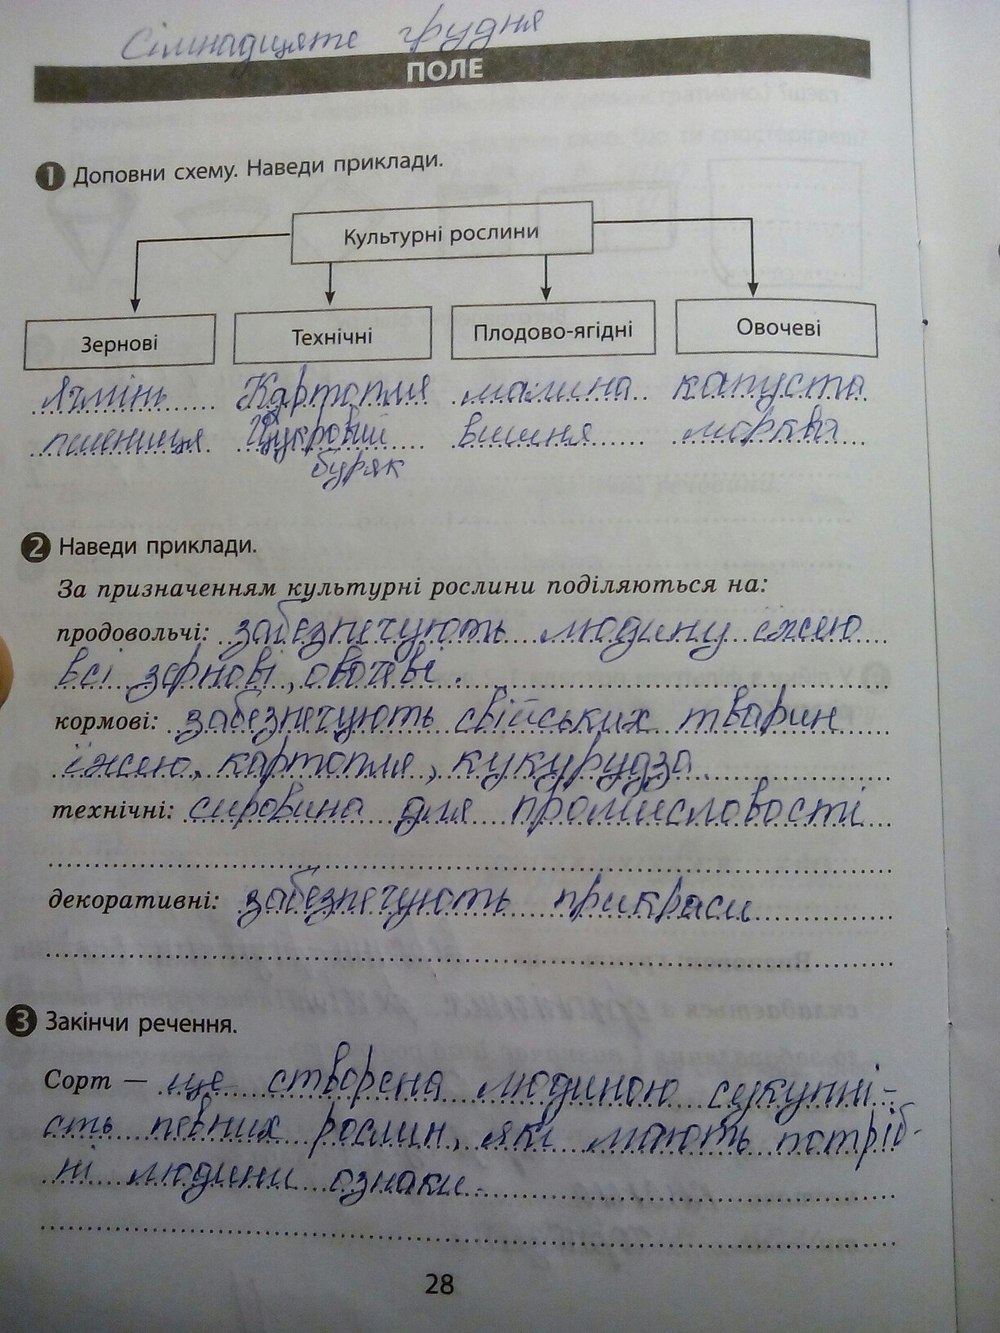 Сімнадцяте грудня
ПОЛЕ
1 Доповни схему. Наведи приклади.
Культурні рослини
Зернові Технічні Плодово-ягідні Овочеві
Ячмінь Картопля малина капуста
пшениця Цукровий вишня морква
буряк
2 Наведи приклади.
За призначенням культурні рослини поділяються на:
продовольчі: забезпечують людину їжею
всі зернові, овочеві.
кормові: забезпечують свійських тварин
їжею. картопля, кукурудза
технічні: сировина для промисловості
декоративні: забезпечують прикраси
3 Закінчи речення.
Сорт — це створена людиною сукупні-
сть певних рослин, які мають потріб-
ні людини ознаки.
28